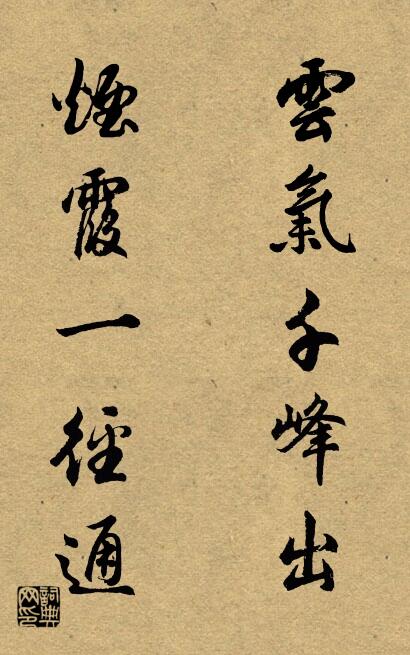 雲氣千峰出
煙霞一徑通
詞典
网印